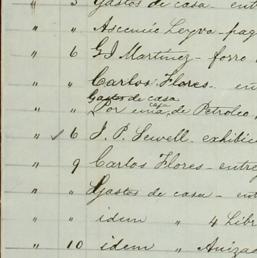 " 3 Gastos de casa - ent
" " Ascencio Leyva - pag
" 6 G J Martinez - forro
" " Carlos Flores - en
Gastos de casa
" " Por una caja de Petroleo
" ✓ 6 J. P. Sewell - exhibic
" 9 Carlos Flores - entre
" " Gastos de casa - ent
" " idem " 4 Libr
" 10 idem " Anizad